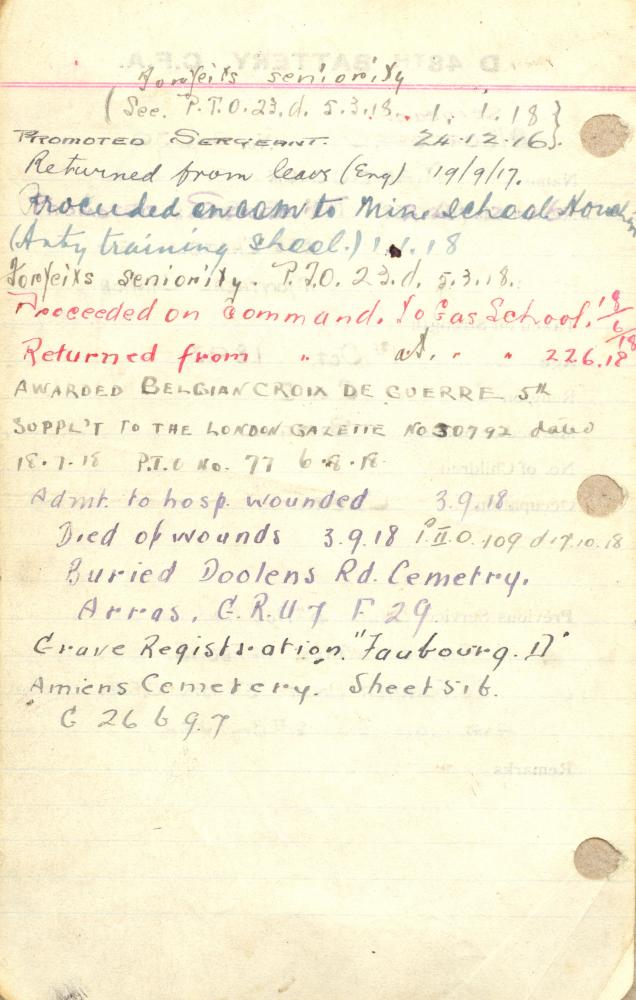 Forfeits seniority
(See. P.T.O. 23. d. 5.3.18. 1. 1. 18}
PROMOTED SERGEANT. 24.12.16}.
Returned from leave (Eng) 19/9/17.
Proceeded on com to Mine School
(Anty training shool.) 1.1.18
Forfeits seniority. P.T.O. 23. d. 5.3.18.
Proceeded on Command. To Gas School. 18/6/18
Returned from " at. " " 22.6.18
AWARDED BELGIAN CROIX DE GUERRE 5th
SUPPL'T TO THE LONDON GAZETTE NO 30792 dated
18.7.18 P.T.O No. 77 6.8.18
Admt. to hosp. wounded 3.9.18.
Died of wounds 3.9.18 P.II.O. 109 d 17.10.18
Buried Doolens Rd. Cemetry.
Arras, G.R.U 7 F 29
Grave Registration. "Faubourg. D"
Amiens Cemetery. Sheet 51b.
G 26 b 9.7